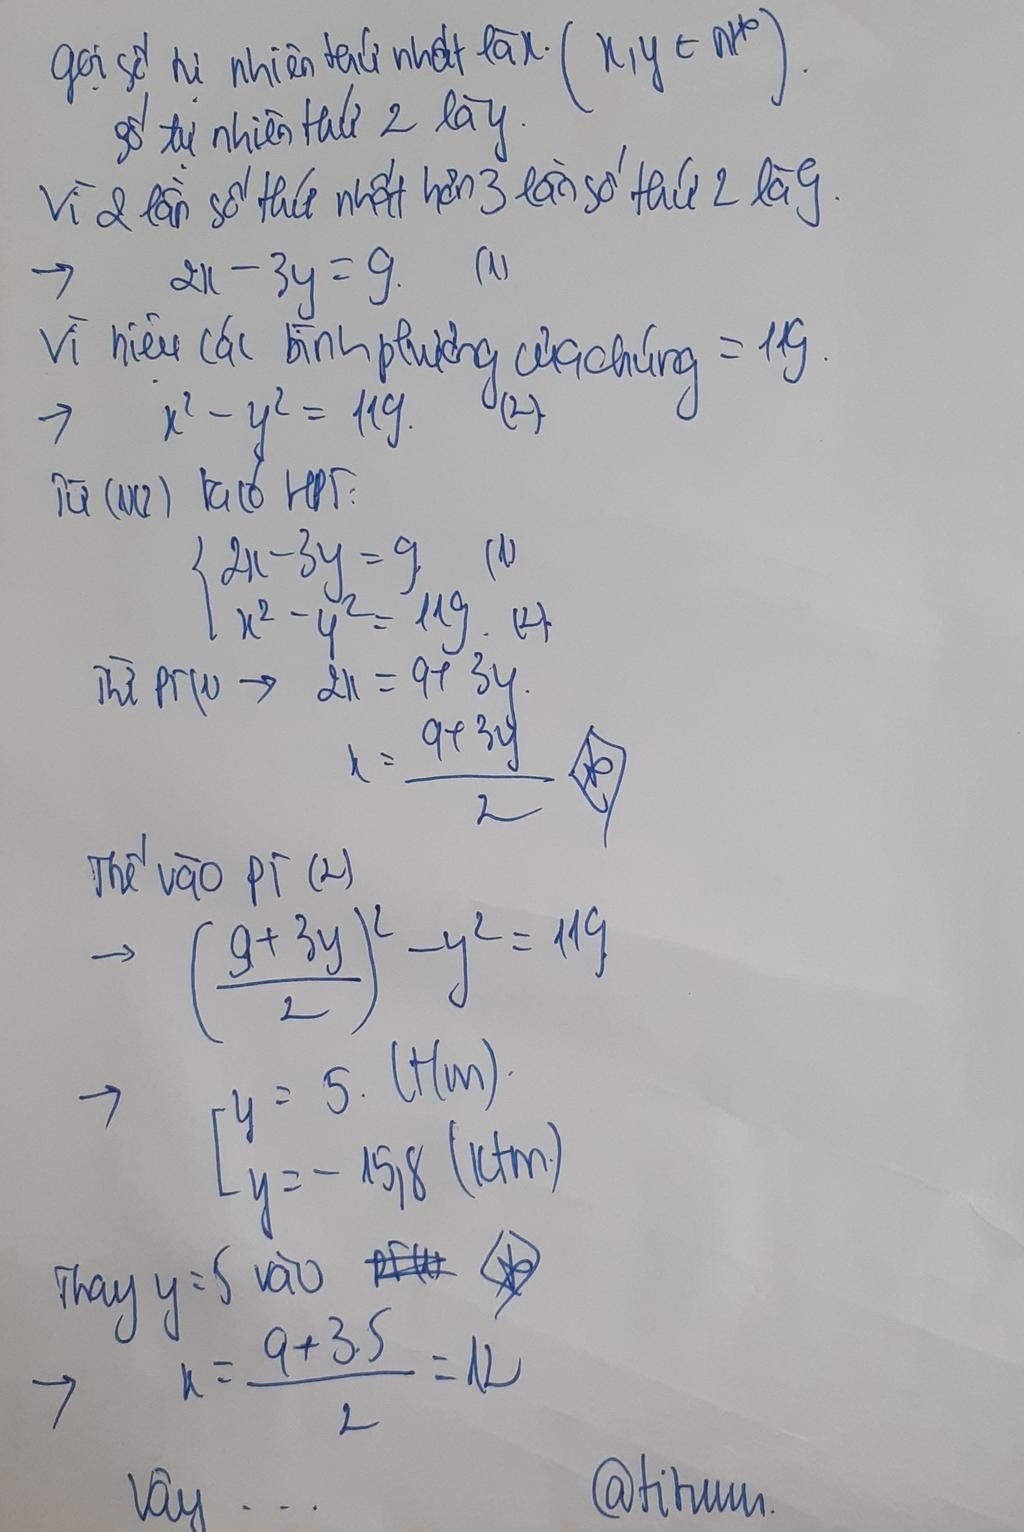 Gọi số tự nhiên thứ nhất là x. (x,y ∈ N*).
số tự nhiên thứ 2 là y.
Vì 2 lần số thứ nhất hơn 3 lần số thứ 2 là 9.
→ 2x - 3y = 9. (1)
Vì hiệu các bình phương của chúng = 119.
→ x² - y² = 119. (2)
Từ (1)(2) ta có HPT:
{ 2x - 3y = 9 (1)
x² - y² = 119. (2)
Từ PT(1) → 2x = 9 + 3y.
x = (9 + 3y)/2 (*)
Thế vào PT (2)
→ ((9 + 3y)/2)² - y² = 119
→ [ y = 5. (t/m).
y = - 15,8 (ktm.)
Thay y = 5 vào (*)
→ x = (9 + 3.5)/2 = 12
Vậy ....